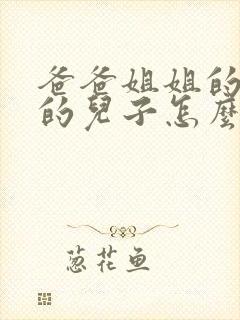 爸爸姐姐的
的兒子怎麼
葱花鱼